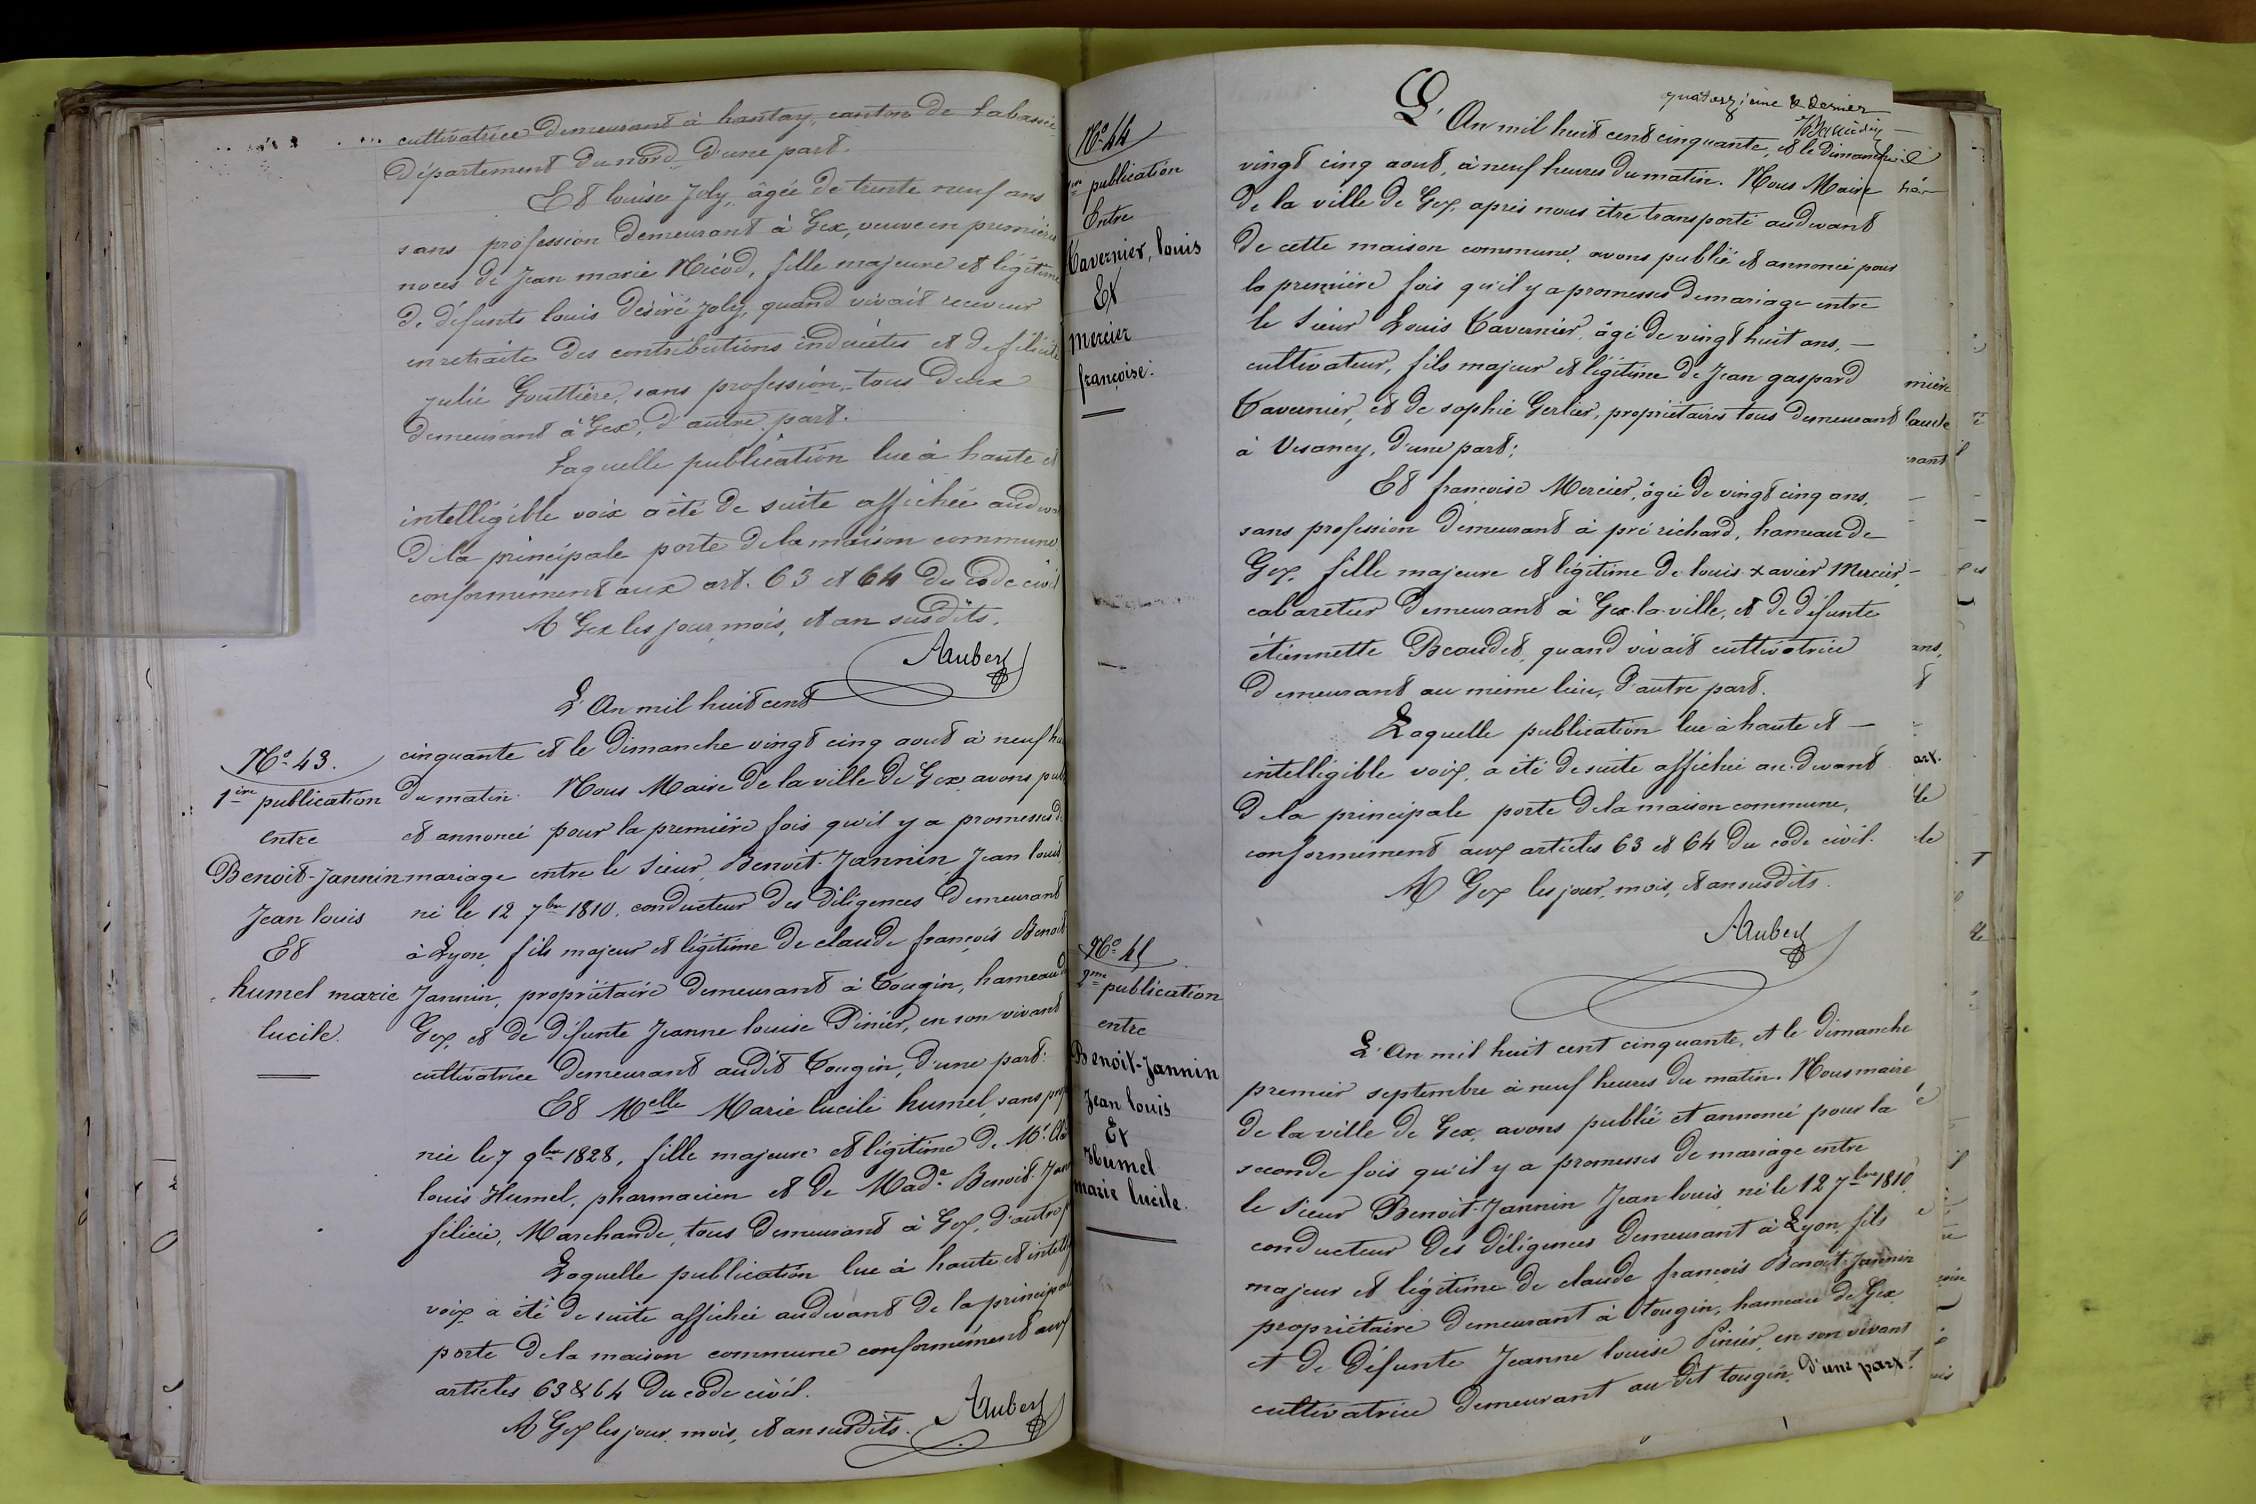 cultivatrice demeurant à hantay, canton de Labassée,
Département du nord, d'une part.
Et louise Joly, âgée de trente neuf ans
sans profession demeurant à Gex, veuve en premières
noces de Jean marie Nicod, fille majeure et légitime
de défunts louis désiré Joly, quand vivait receveur
en retraite des contributions indirectes et de félicité
julie Gouttière, sans profession, tous deux
demeurant à Gex, d'autre part.
Laquelle publication lue à haute et
intelligible voix a été de suite affichée audevant
de la principale porte de la maison commune
conformément aux art. 63 et 64 du code civil
A Gex les jour, mois, et an susdits.
Aubert
L'An mil huit cent
No. 43.
1ère publication
entre
Benoit-Jannin
Jean louis
Et
humel marie
lucile.
cinquante et le dimanche vingt cinq aout à neuf
du matin. Nous Maire de la ville de Gex, avons
et annoncé pour la première fois qu'il y a promesses de
mariage entre le sieur Benoit-Jannin Jean louis,
né le 12 7bre 1810, conducteur des diligences demeurant
à Lyon, fils majeur et légitime de claude françois Benoit
Jannin, propriétaire demeurant à Tougin, hameau de
Gex, et de défunte Jeanne louise Pinier, en son vivant
cultivatrice demeurant audit Tougin, d'une part:
Et Melle Marie lucile humel, sans
née le 7 9bre 1828, fille majeure et légitime de Mr.
louis Humel, pharmacien et de Made. Benoit-
félicie, Marchande, tous demeurant à Gex, d'autre
Laquelle publication lue à haute et
voix a été de suite affichée audevant de la principale
porte de la maison commune conformément aux
articles 63 & 64 du code civil.
A Gex les jour, mois, et an susdits.
Aubert
quatorzième & dernier
No. 44
publication
Entre
Tavernier, louis
Et
Mercier
françoise.
L'An mil huit cent cinquante, et le dimanche
vingt cinq aout, à neuf heures du matin. Nous Maire
de la ville de Gex, après nous être transporté audevant
de cette maison commune, avons publié et annoncé pour
la première fois qu'il y a promesses de mariage entre
le sieur Louis Tavernier, âgé de vingt huit ans,
cultivateur, fils majeur et légitime de Jean gaspard
Tavernier, et de sophie Gerlier, propriétaires tous demeurant
à Vesancy, d'une part;
Et françoise Mercier, âgée de vingt cinq ans,
sans profession demeurant à pré richard, hameau de
Gex, fille majeure et légitime de louis xavier Mercier,
cabaretier demeurant à Gex-la-ville, et de défunte
étiennette Beaudet, quand vivait cultivatrice
demeurant au même lieu, d'autre part.
Laquelle publication lue à haute et
intelligible voix, a été de suite affichée au-devant
de la principale porte de la maison commune,
conformément aux articles 63 et 64 du code civil.
A Gex les jour, mois, et an susdits.
Aubert
No. 45
2me publication
entre
Benoit-Jannin
Jean louis
Et
Humel
marie lucile.
L'An mil huit cent cinquante, et le dimanche
premier septembre à neuf heures du matin. Nous maire
de la ville de Gex, avons publié et annoncé pour la
seconde fois qu'il y a promesses de mariage entre
le sieur Benoit-Jannin Jean louis, né le 12 7bre 1810,
conducteur des diligences demeurant à Lyon, fils
majeur et légitime de claude françois Benoit-Jannin
propriétaire demeurant à tougin, hameau de Gex
et de défunte Jeanne louise Pinier, en son vivant
cultivatrice demeurant au dit tougin, d'une part.